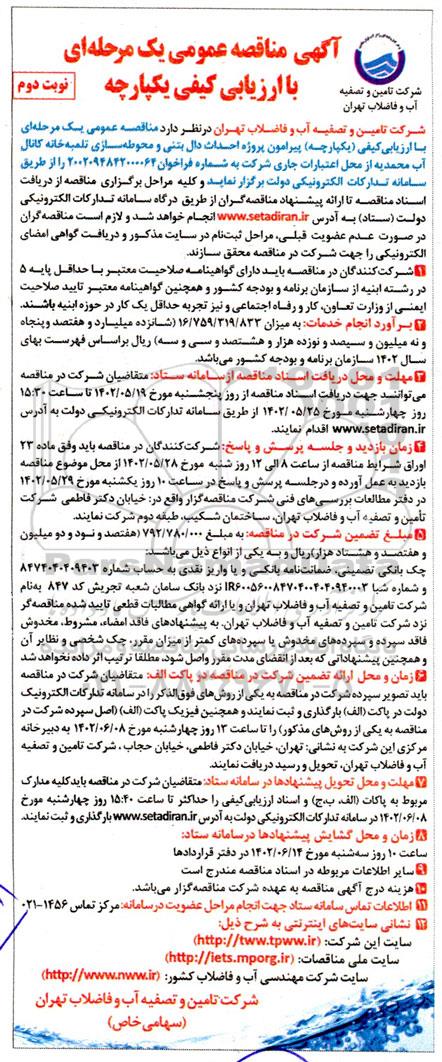 آگهی مناقصه عمومی یک مرحله‌ای
با ارزیابی کیفی یکپارچه
نوبت دوم
شرکت تامین و تصفیه
آب و فاضلاب تهران
شرکت تامین و تصفیه آب و فاضلاب تهران درنظر دارد مناقصه عمومی یک مرحله‌ای
با ارزیابی کیفی (یکپارچه) پیرامون پروژه احداث دال بتنی و محوطه‌سازی تلمبه‌خانه کانال
آب محمدیه از محل اعتبارات جاری شرکت به شماره فراخوان ۲۰۰۲۰۹۴۸۴۲۰۰۰۰۶۴ را از طریق
سامانه تدارکات الکترونیکی دولت برگزار نماید و کلیه مراحل برگزاری مناقصه از دریافت
اسناد مناقصه تا ارائه پیشنهاد مناقصه‌گران از طریق درگاه سامانه تدارکات الکترونیکی
دولت (ستاد) به آدرس www.setadiran.ir انجام خواهد شد و لازم است مناقصه‌گران
در صورت عدم عضویت قبلی، مراحل ثبت‌نام در سایت مذکور و دریافت گواهی امضای
الکترونیکی را جهت شرکت در مناقصه محقق سازند.
۱ شرکت‌کنندگان در مناقصه باید دارای گواهینامه صلاحیت معتبر با حداقل پایه ۵
در رشته ابنیه از سازمان برنامه و بودجه کشور و همچنین گواهینامه معتبر تایید صلاحیت
ایمنی از وزارت تعاون، کار و رفاه اجتماعی و نیز تجربه حداقل یک کار در حوزه ابنیه باشند.
۲ برآورد انجام خدمات: به میزان ۱۶/۷۵۹/۳۱۹/۸۳۳ (شانزده میلیارد و هفتصد و پنجاه
و نه میلیون و سیصد و نوزده هزار و هشتصد و سی و سه) ریال براساس فهرست بهای
سال ۱۴۰۲ سازمان برنامه و بودجه کشور می‌باشد.
۳ مهلت و محل دریافت اسناد مناقصه از سامانه ستاد: متقاضیان شرکت در مناقصه
می‌توانند جهت دریافت اسناد مناقصه از روز پنجشنبه مورخ ۱۴۰۲/۰۵/۱۹ تا ساعت ۱۵:۳۰
روز چهارشنبه مورخ ۱۴۰۲/۰۵/۲۵ از طریق سامانه تدارکات الکترونیکی دولت به آدرس
www.setadiran.ir اقدام نمایند.
۴ زمان بازدید و جلسه پرسش و پاسخ: شرکت‌کنندگان در مناقصه باید وفق ماده ۲۳
اوراق شرایط مناقصه از ساعت ۸ الی ۱۲ روز شنبه مورخ ۱۴۰۲/۰۵/۲۸ از محل موضوع مناقصه
بازدید به عمل آورده و درجلسه پرسش و پاسخ در ساعت ۱۰ روز یکشنبه مورخ ۱۴۰۲/۰۵/۲۹
در دفتر مطالعات بررسی‌های فنی شرکت مناقصه‌گزار واقع در: خیابان دکتر فاطمی شرکت
تأمین و تصفیه آب و فاضلاب تهران، ساختمان شکیب، طبقه دوم شرکت نمایند.
۵ مبلغ تضمین شرکت در مناقصه: به مبلغ ۷۹۲/۷۸۰/۰۰۰ (هفتصد و نود و دو میلیون
و هفتصد و هشتاد هزار) ریال و به یکی از انواع ذیل می‌باشد:
چک بانکی تضمینی، ضمانت‌نامه بانکی و یا واریز نقدی به حساب شماره ۸۴۷۴۰۴۰۹۴۰۳
و شماره شبا نزد بانک سامان شعبه تجریش کد ۸۴۷ به‌نام
شرکت تامین و تصفیه آب و فاضلاب تهران و یا ارائه گواهی مطالبات قطعی تایید شده مناقصه‌گر
نزد شرکت تامین و تصفیه آب و فاضلاب تهران. به پیشنهادهای فاقد امضاء، مشروط، مخدوش
فاقد سپرده و سپرده‌های مخدوش یا سپرده‌های کمتر از میزان مقرر، چک شخصی و نظایر آن
و همچنین پیشنهاداتی که بعد از انقضای مدت مقرر واصل شود، مطلقا ترتیب اثر داده نخواهد شد
۶ زمان و محل ارائه تضمین شرکت در مناقصه در پاکت الف: متقاضیان شرکت در مناقصه
باید تصویر سپرده شرکت در مناقصه به یکی از روش‌های فوق‌الذکر را در سامانه تدارکات الکترونیک
دولت در پاکت (الف) بارگذاری و ثبت نمایند و همچنین فیزیک پاکت (الف) (اصل سپرده شرکت در
مناقصه به یکی از روش‌های مذکور) را تا ساعت ۱۳ روز چهارشنبه مورخ ۱۴۰۲/۰۶/۰۸ به دبیرخانه
مرکزی این شرکت به نشانی: تهران، خیابان دکتر فاطمی، خیابان حجاب، شرکت تامین و تصفیه
آب و فاضلاب تهران، تحویل و رسید دریافت نمایند.
۷ مهلت و محل تحویل پیشنهادها در سامانه ستاد: متقاضیان شرکت در مناقصه باید کلیه مدارک
مربوط به پاکات (الف، ب، ج) و اسناد ارزیابی کیفی را حداکثر تا ساعت ۱۵:۴۰ روز چهارشنبه مورخ
۱۴۰۲/۰۶/۰۸ در سامانه تدارکات الکترونیکی دولت به آدرس www.setadiran.ir بارگذاری و ثبت نمایند.
۸ زمان و محل گشایش پیشنهادها درسامانه ستاد:
ساعت ۱۰ روز سه‌شنبه مورخ ۱۴۰۲/۰۶/۱۴ در دفتر قراردادها
۹ سایر اطلاعات مربوطه در اسناد مناقصه مندرج است
۱۰ هزینه درج آگهی مناقصه به عهده شرکت مناقصه‌گزار می‌باشد.
۱۱ اطلاعات تماس سامانه ستاد جهت انجام مراحل عضویت درسامانه: مرکز تماس ۱۴۵۶-۰۲۱
۱۲ نشانی سایت‌های اینترنتی به شرح ذیل:
سایت این شرکت: (http://tww.tpww.ir)
سایت ملی مناقصات: (http://iets.mporg.ir)
سایت شرکت مهندسی آب و فاضلاب کشور: (http://www.nww.ir)
شرکت تامین و تصفیه آب و فاضلاب تهران
(سهامی خاص)